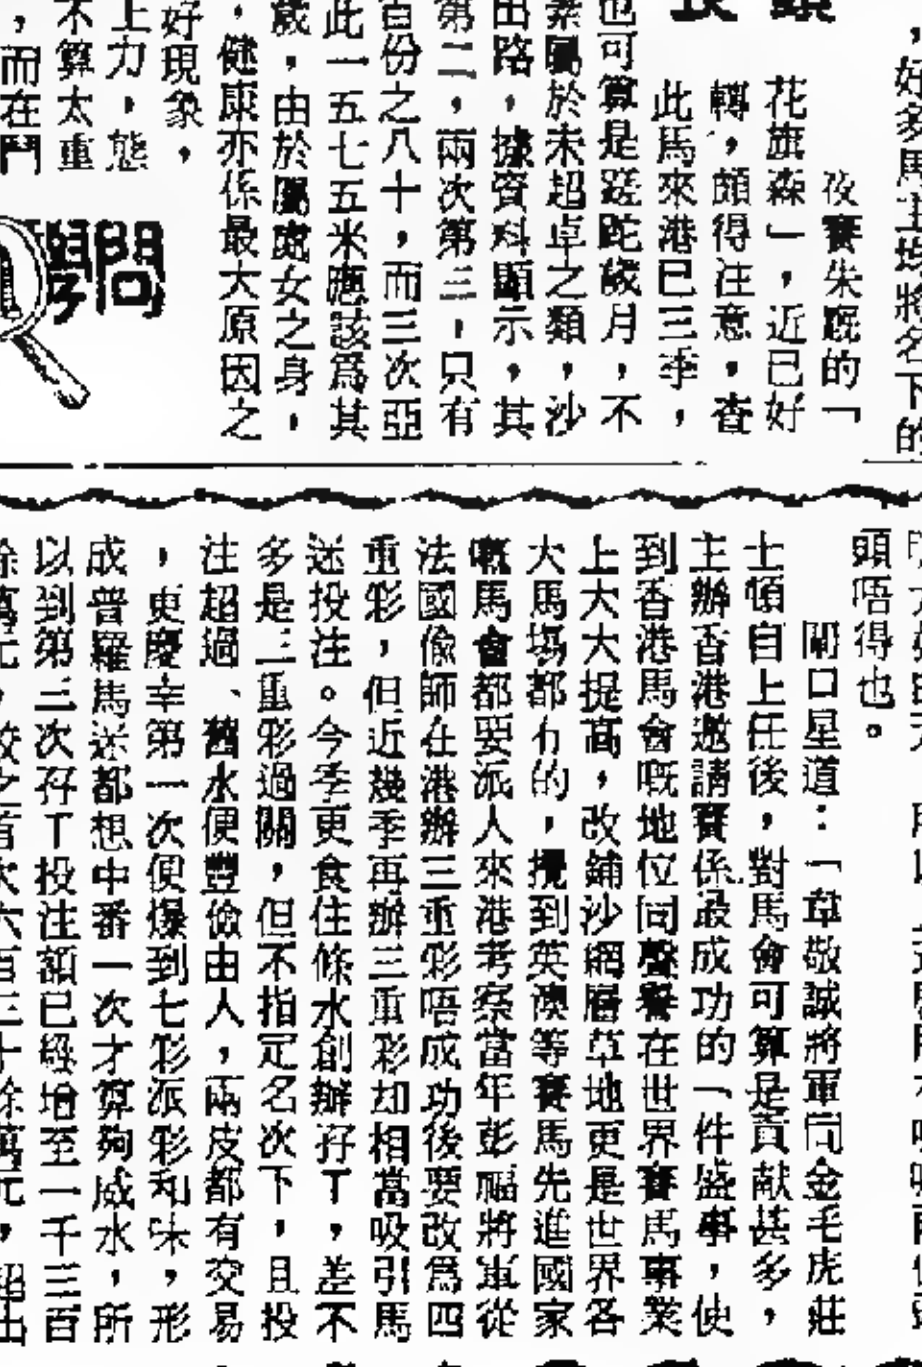 ，好多馬主均將名下的
夜賽朱旣的「
花旗森」，近已好
轉，頗得注意，查
此馬來港已三季，
也可算是蹉跎歲月，不
素屬於未超卓之類，沙
出路，據資料顯示，其
第二，兩次第三，只有
百份之八十，而三次亞
此一五七五米應該爲其
歲，由於屬處女之身，
，健康亦係最大原因之
好現象，
上力，態
不算太重
，而在鬥
問
學
頭唔得也。
閘口星道：「韋敬誠將軍同金毛虎莊
士頓自上任後，對馬會可算是貢献甚多，
主辦香港邀請賽係最成功的一件盛事，使
到香港馬會嘅地位同聲譽在世界賽馬事業
上大大提高，改鋪沙網層草地更是世界各
大馬塲都冇的，攪到英澳等賽馬先進國家
嘅馬會都要派人來港考察當年彭福將軍從
法國儉師在港辦三重彩唔成功後要改爲四
重彩，但近幾季再辦三重彩却相當吸引馬
迷投注。今季更食住條水創辦孖T，差不
多是三重彩過關，但不指定名次下，且投
注超過、舊水便豐儉由人，兩皮都有交易
，更慶幸第一次便爆到七彩派彩和味，形
成普羅馬迷都想中番一次才算夠威水，所
以到第三次孖T投注額已經增至一千三百
餘萬元，較之首次六百三十餘萬元，超出